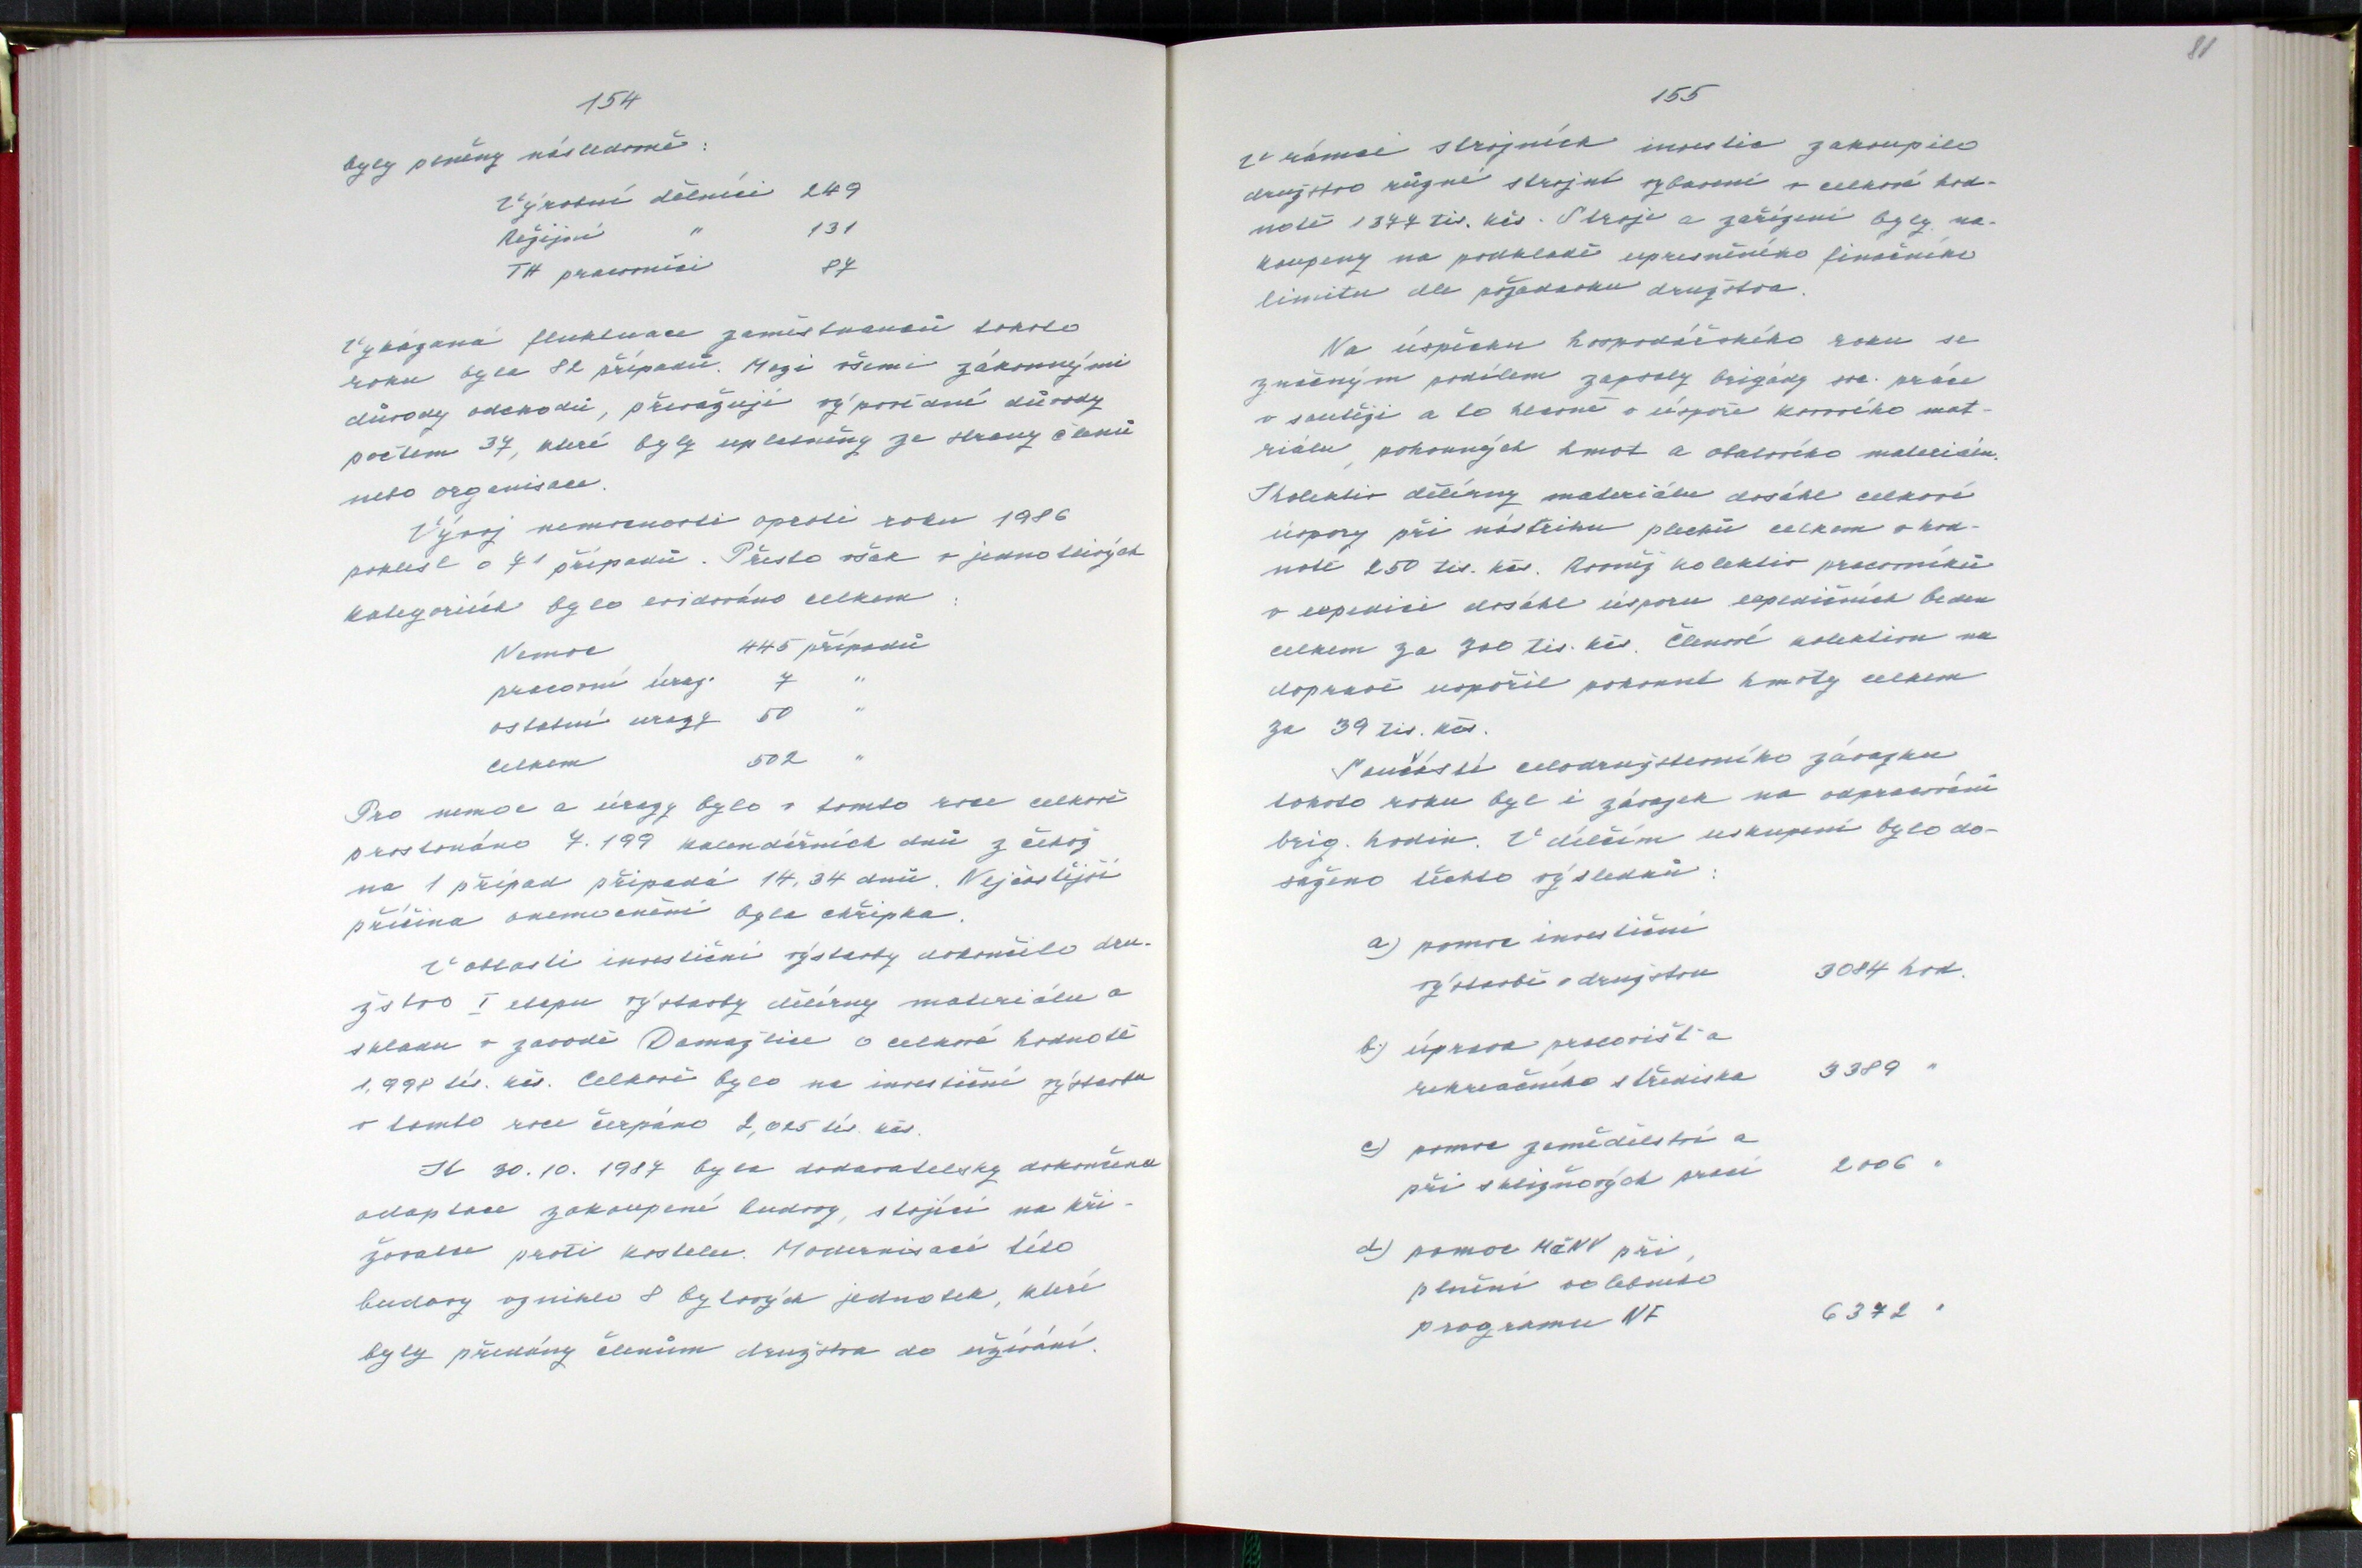 154
byly plněny následovně:
Výrobní dělníci 249
Režijní " 131
TH pracovníci 87
Vykázaná fluktuace zaměstnanců tohoto
roku byla 82 případů. Mezi všemi zákonnými
důvody odchodů, převažují výpovědné důvody
počtem 37, které byly uplatněny ze strany členů
nebo organisace.
Vývoj nemocnosti oproti roku 1986
poklesl o 71 případů. Přesto však v jednotlivých
kategoriích bylo evidováno celkem:
Nemoc 445 případů
pracovní úraz. 7 "
ostatní urazy 50 "
celkem 502 "
Pro nemoc a úrazy bylo v tomto roce celkově
prostonáno 7.199 kalendářních dnů z čehož
na 1 případ připadá 14,34 dnů. Nejčastější
příčina onemocnění byla chřipka.
V oblasti investiční výstavby dokončilo dru-
žstvo I etapu výstavby dělírny materiálu a
skladu v zavodě Domažlice o celkové hodnotě
1,998 tis. kčs. Celkově bylo na investiční výstavbu
v tomto roce čerpáno 2,025 tis. kčs.
K 30.10. 1987 byla dodavatelsky dokončena
adaptace zakoupené budovy, stojící na kři-
žovatce proti kostelu. Modernisací této
budovy vzniklo 8 bytových jednotek, které
byly předány členům družstva do užívání.
81
155
V rámci strojních investic zakoupilo
družstvo různé strojní vybavení v celkové hod-
notě 1377 tis. kčs. Stroje a zařízení byly na-
koupeny na podkladě upresněného finačního
limitu dle požadavku družstva.
Na úspěchu hospodářského roku se
značným podílem zapsaly brigády soc. práce
v soutěži a to hlavně v úspoře kovového mat-
riálu, pohonných hmot a obalového materiálu.
Kolektiv dělírny materiálu dosáhl celkové
úspory při nástřihu plechů celkem v hod-
notě 250 tis. kčs. Rovněž kolektiv pracovníků
v expedici dosáhl úsporu expedičních beden
celkem za 300 tis. kčs. Členové kolektivu na
dopravě uspořil pohonné hmoty celkem
za 39 tis. kčs.
Součástí celodružstevního závazku
tohoto roku byl i závazek na odpracování
brig. hodin. V dílčím uskupení bylo do-
saženo těchto výsledků:
a) pomoc investiční
výstavbě v družstvu 3084 hod.
b.) úprava pracovišť a
rekreačního střediska 3389 "
c) pomoc zemědělství a
při sklizňových prací 2006 "
d) pomoc MěNV při
plnění volebního
programu NF 6372 "